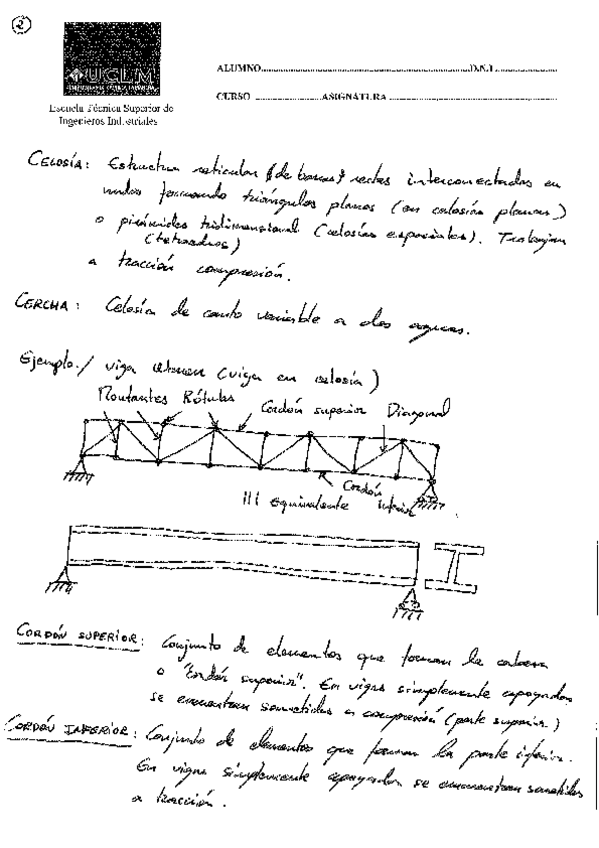 2
UCLM
Escuela Técnica Superior de
Ingenieros Industriales
ALUMNO..........D.N.I..........
CURSO ..........ASIGNATURA..........
CELOSÍA: Estructura reticular (de barras) rectas interconectadas en
nudos formando triángulos planos (en celosías planas)
o pirámides tridimensional (celosías espaciales). Trabajan
(tetraedros)
a tracción compresión.
CERCHA: Celosía de canto variable a dos aguas.
Ejemplo./ viga (viga en celosía)
Montantes Rótulas Cordón superior Diagonal
Cordón inferior
||| equivalente
CORDÓN SUPERIOR: Conjunto de elementos que forman la cabeza
o "Cordón superior". En vigas simplemente apoyadas
se encuentran sometidos a compresión (parte superior)
CORDÓN INFERIOR: Conjunto de elementos que forman la parte inferior.
En vigas simplemente apoyadas se encuentran sometidos
a tracción.